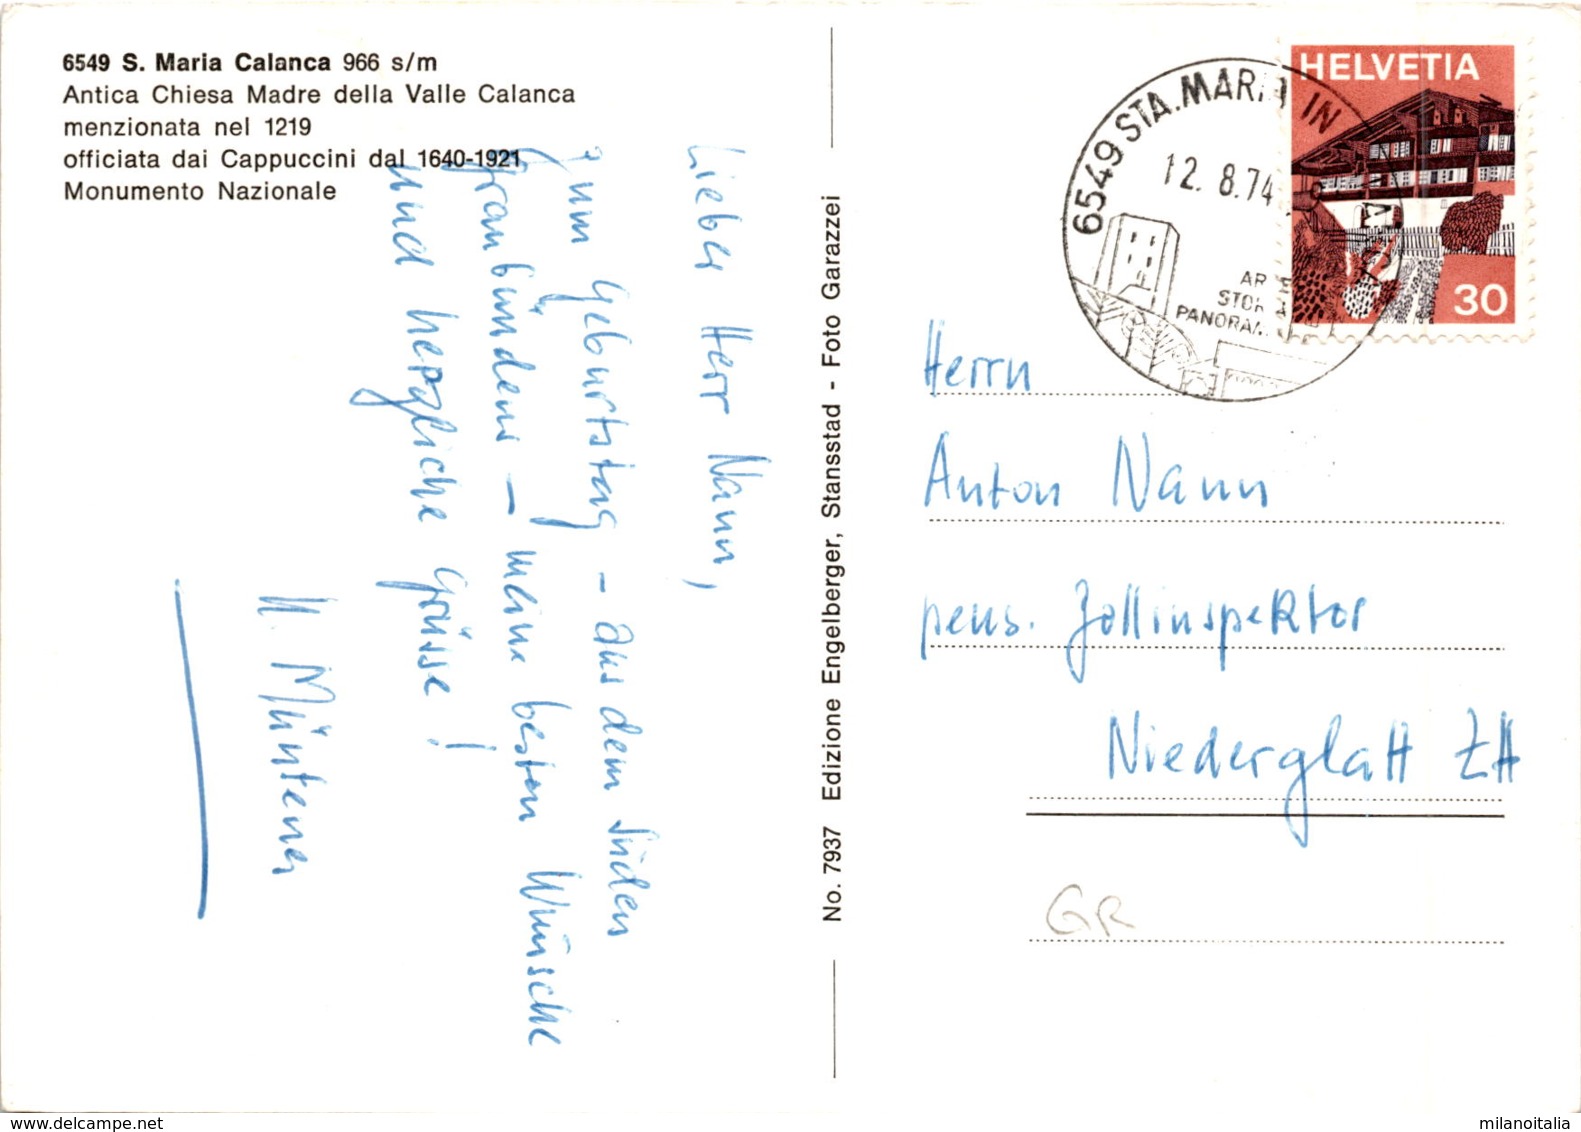 6549 S. Maria Calanca 966 s/m
Antica Chiesa Madre della Valle Calanca
menzionata nel 1219
officiata dai Cappuccini dal 1640-1921
Monumento Nazionale
Lieber Herr Nann,
Zum Geburtstag – aus dem Süden
Graubündens – meine besten Wünsche
und herzliche Grüsse!
H. Müntener
No. 7937 Edizione Engelberger, Stansstad - Foto Garazzei
6549 STA. MARIA IN
12.8.74
PANORAM
HELVETIA
30
Herrn
Anton Nann
pens. Zollinspektor
Niederglatt ZH
GR
delcampe.net
milanoitalia